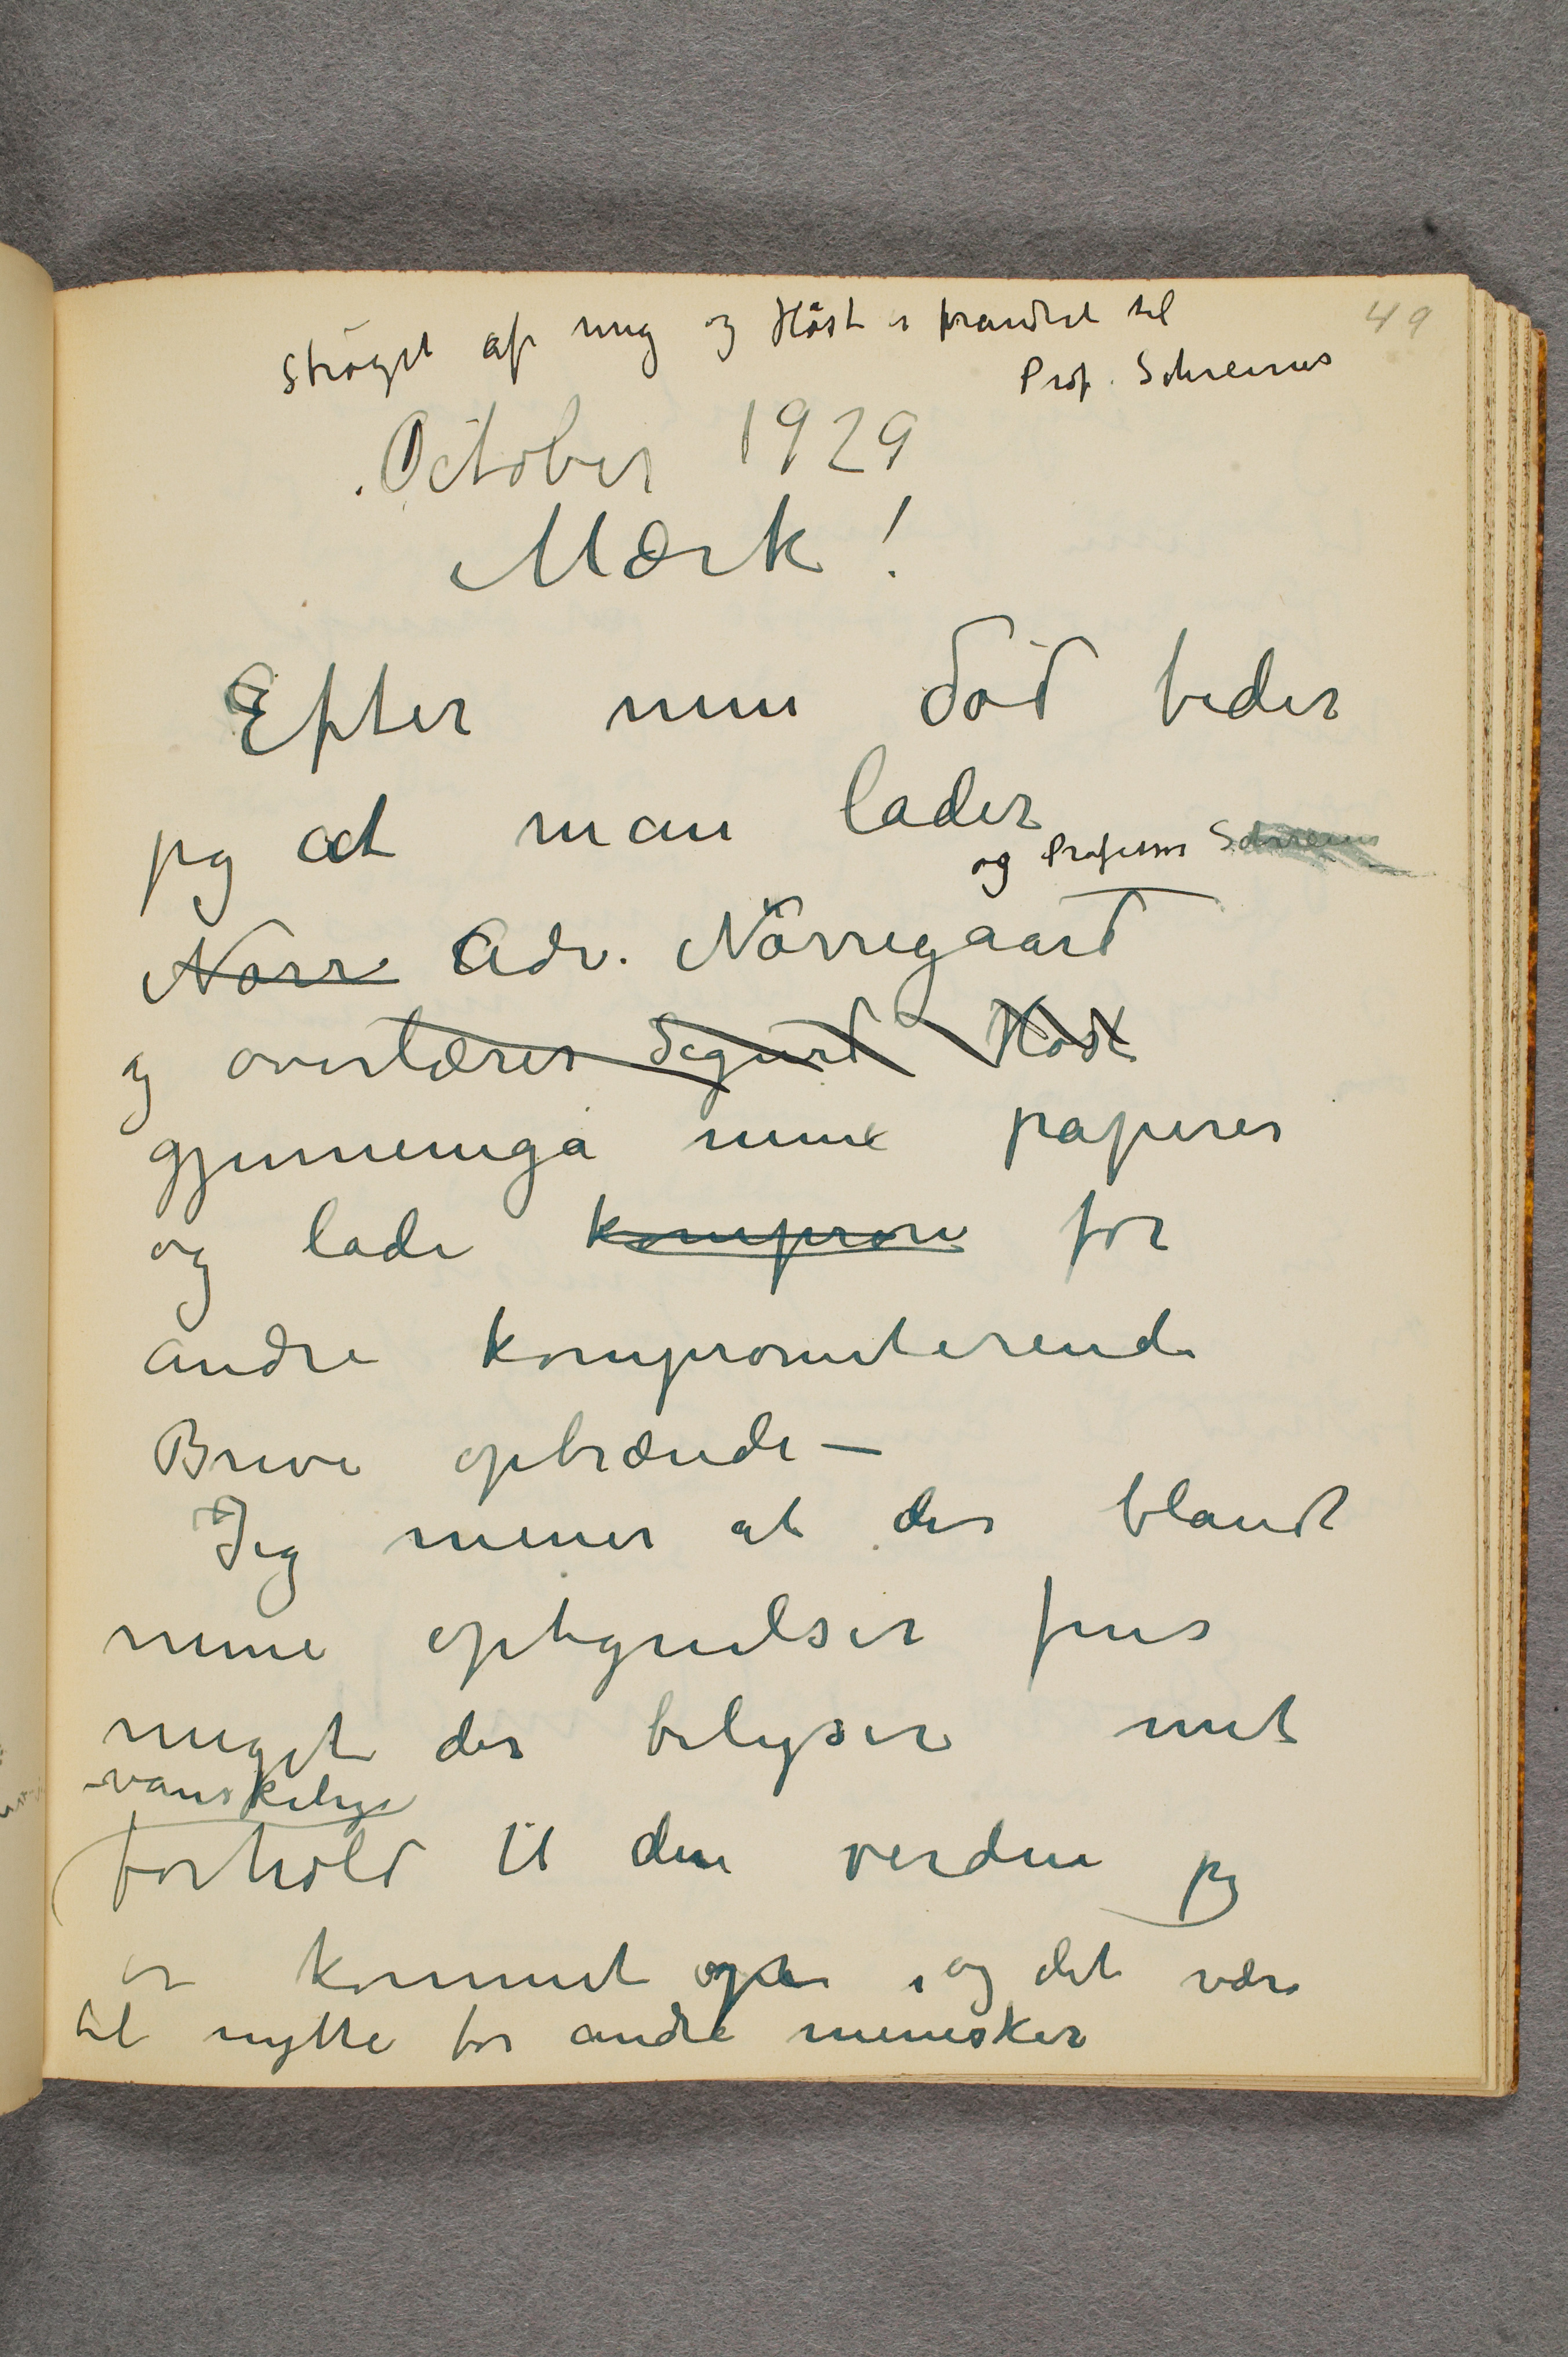 49
Strøget af mig og Høst er forandret til
Prof. Schreiner
October 1929
Mærk!
Efter min død beder
jeg at man lader
og Professor Schreiner
Nørr Adv. Nørregaard
og overlærer Sigurd Høst
gjennemgå mine papirer
og lade komprom for
andre kompromiterende
Breve opbrænde –
Jeg mener at der blandt
mine optegnelser fins
meget der belyser mit
vanskelige
forhold til den verden jeg
er kommet op i og det være
til nytte for andre mennesker